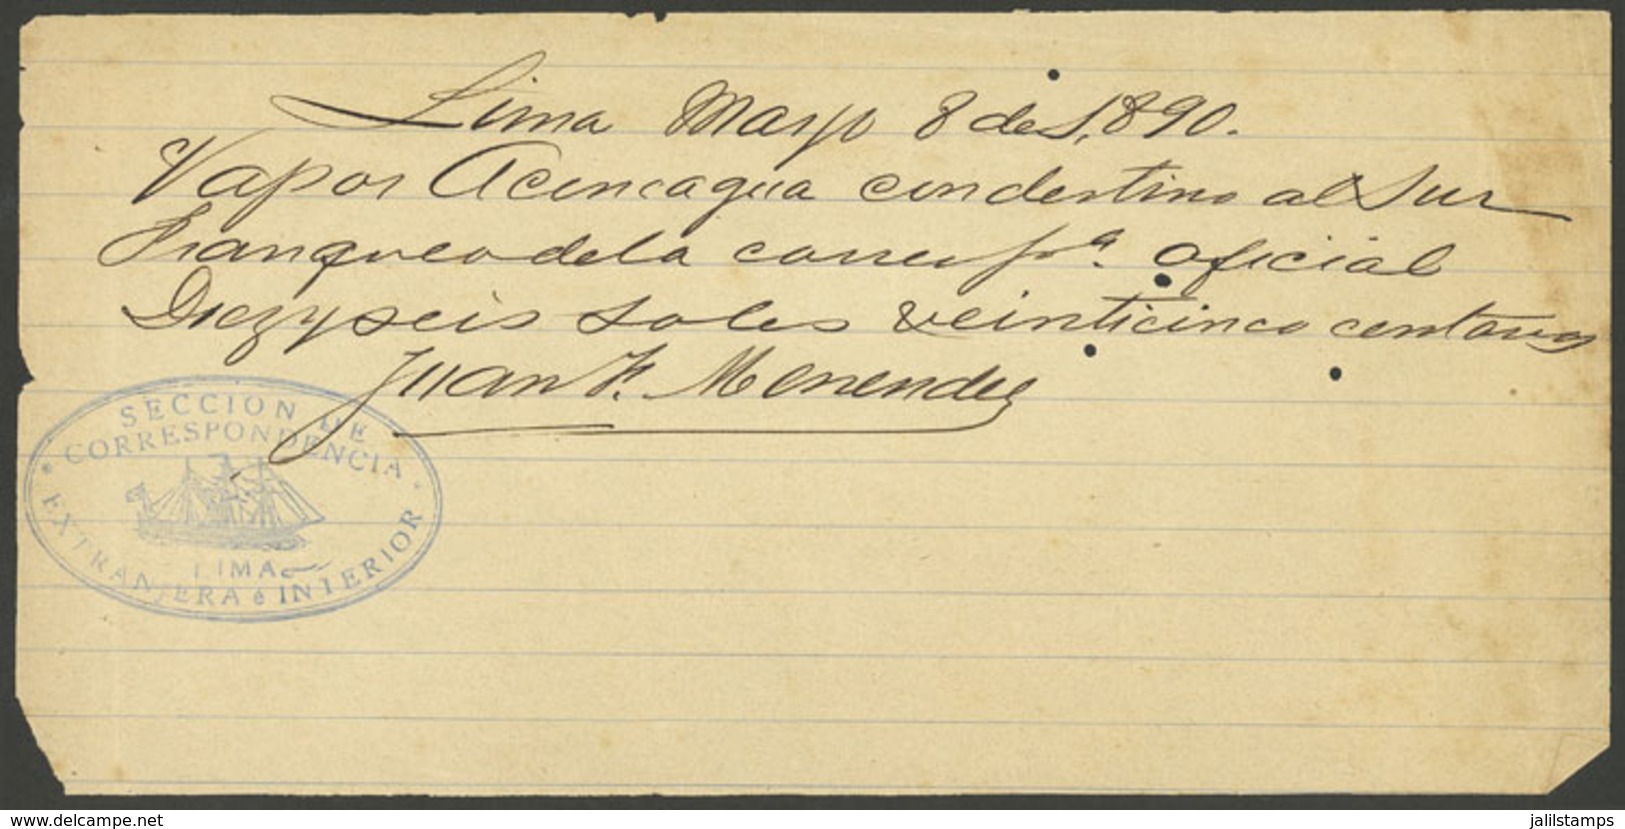 Lima Mayo 8 de 1,890.
Vapor Aconcagua con destino al Sur
Franqueo de la corresp.a oficial
Diez y seis soles veinticinco centavos
Juan F. Menendez
SECCION DE
CORRESPONDENCIA
LIMA
EXTRANJERA é INTERIOR
www.delcampe.net
jalilstamps